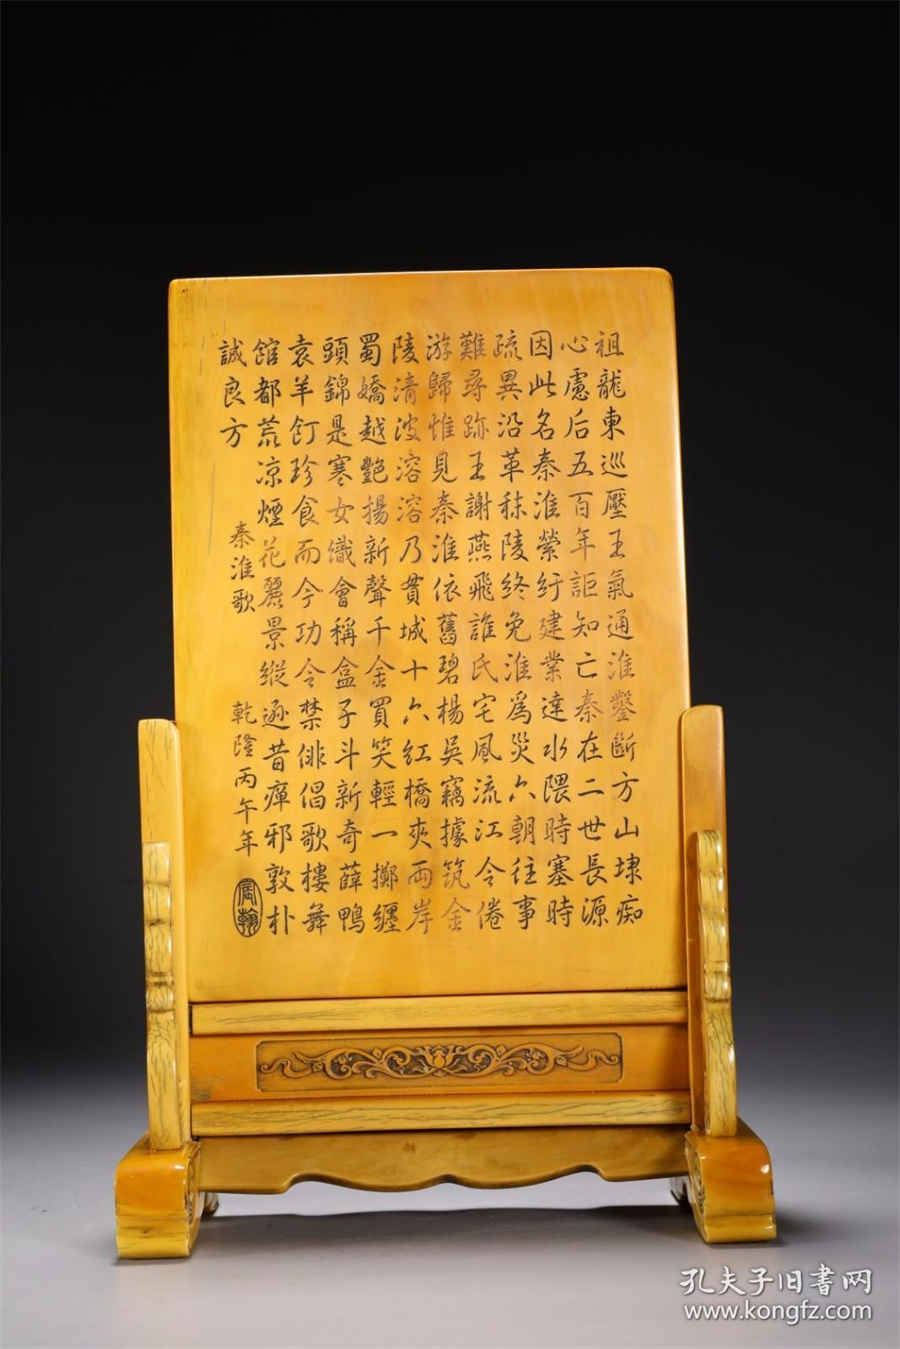 祖龍東巡壓王氣通淮鑿斷方山埭痴
心慮后五百年詎知亡秦在二世長源
因此名秦淮縈紆建業達水隈時塞時
疏異沿革秣陵終免淮爲災六朝往事
難尋跡王謝燕飛誰氏宅風流江令倦
游歸惟見秦淮依舊碧楊吳竊據筑金
陵清波溶溶乃貫城十六紅橋夾兩岸
蜀嬌越艷揚新聲千金買笑輕一擲纏
頭錦是寒女織會稱盒子斗新奇薛鴨
袁羊飣珍食而今功令禁俳倡歌樓舞
館都荒凉煙花麗景縱遜昔癉邪敦朴
誠良方
秦淮歌 乾隆丙午年
孔夫子旧書网
www.kongfz.com